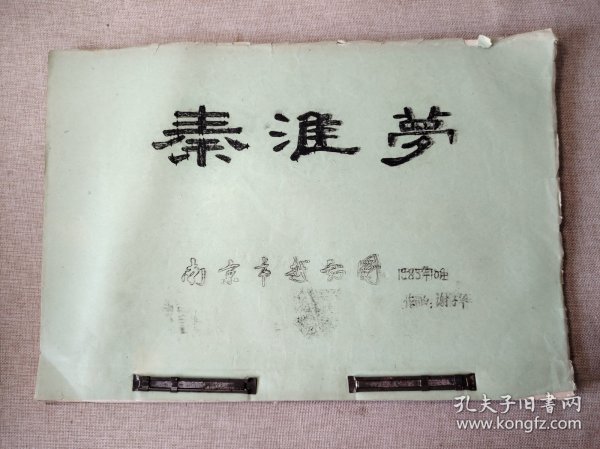 秦淮夢
南京市越剧团 1985年10月
作曲：谢子华
孔夫子旧書网
www.kongfz.com